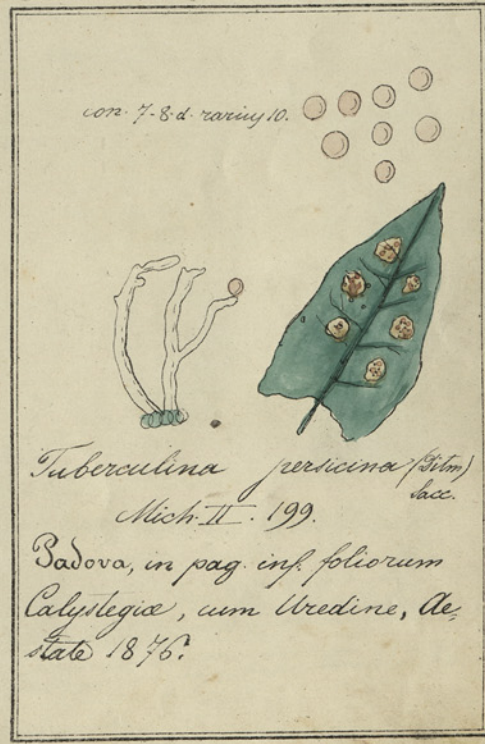 con. 7-8. d. rarius 10.
Tuberculina persicina (Ditm)
Sacc.
Mich. II. 199.
Padova, in pag. inf. foliorum
Calystegiæ, cum Uredine, Ae-
state 1876.